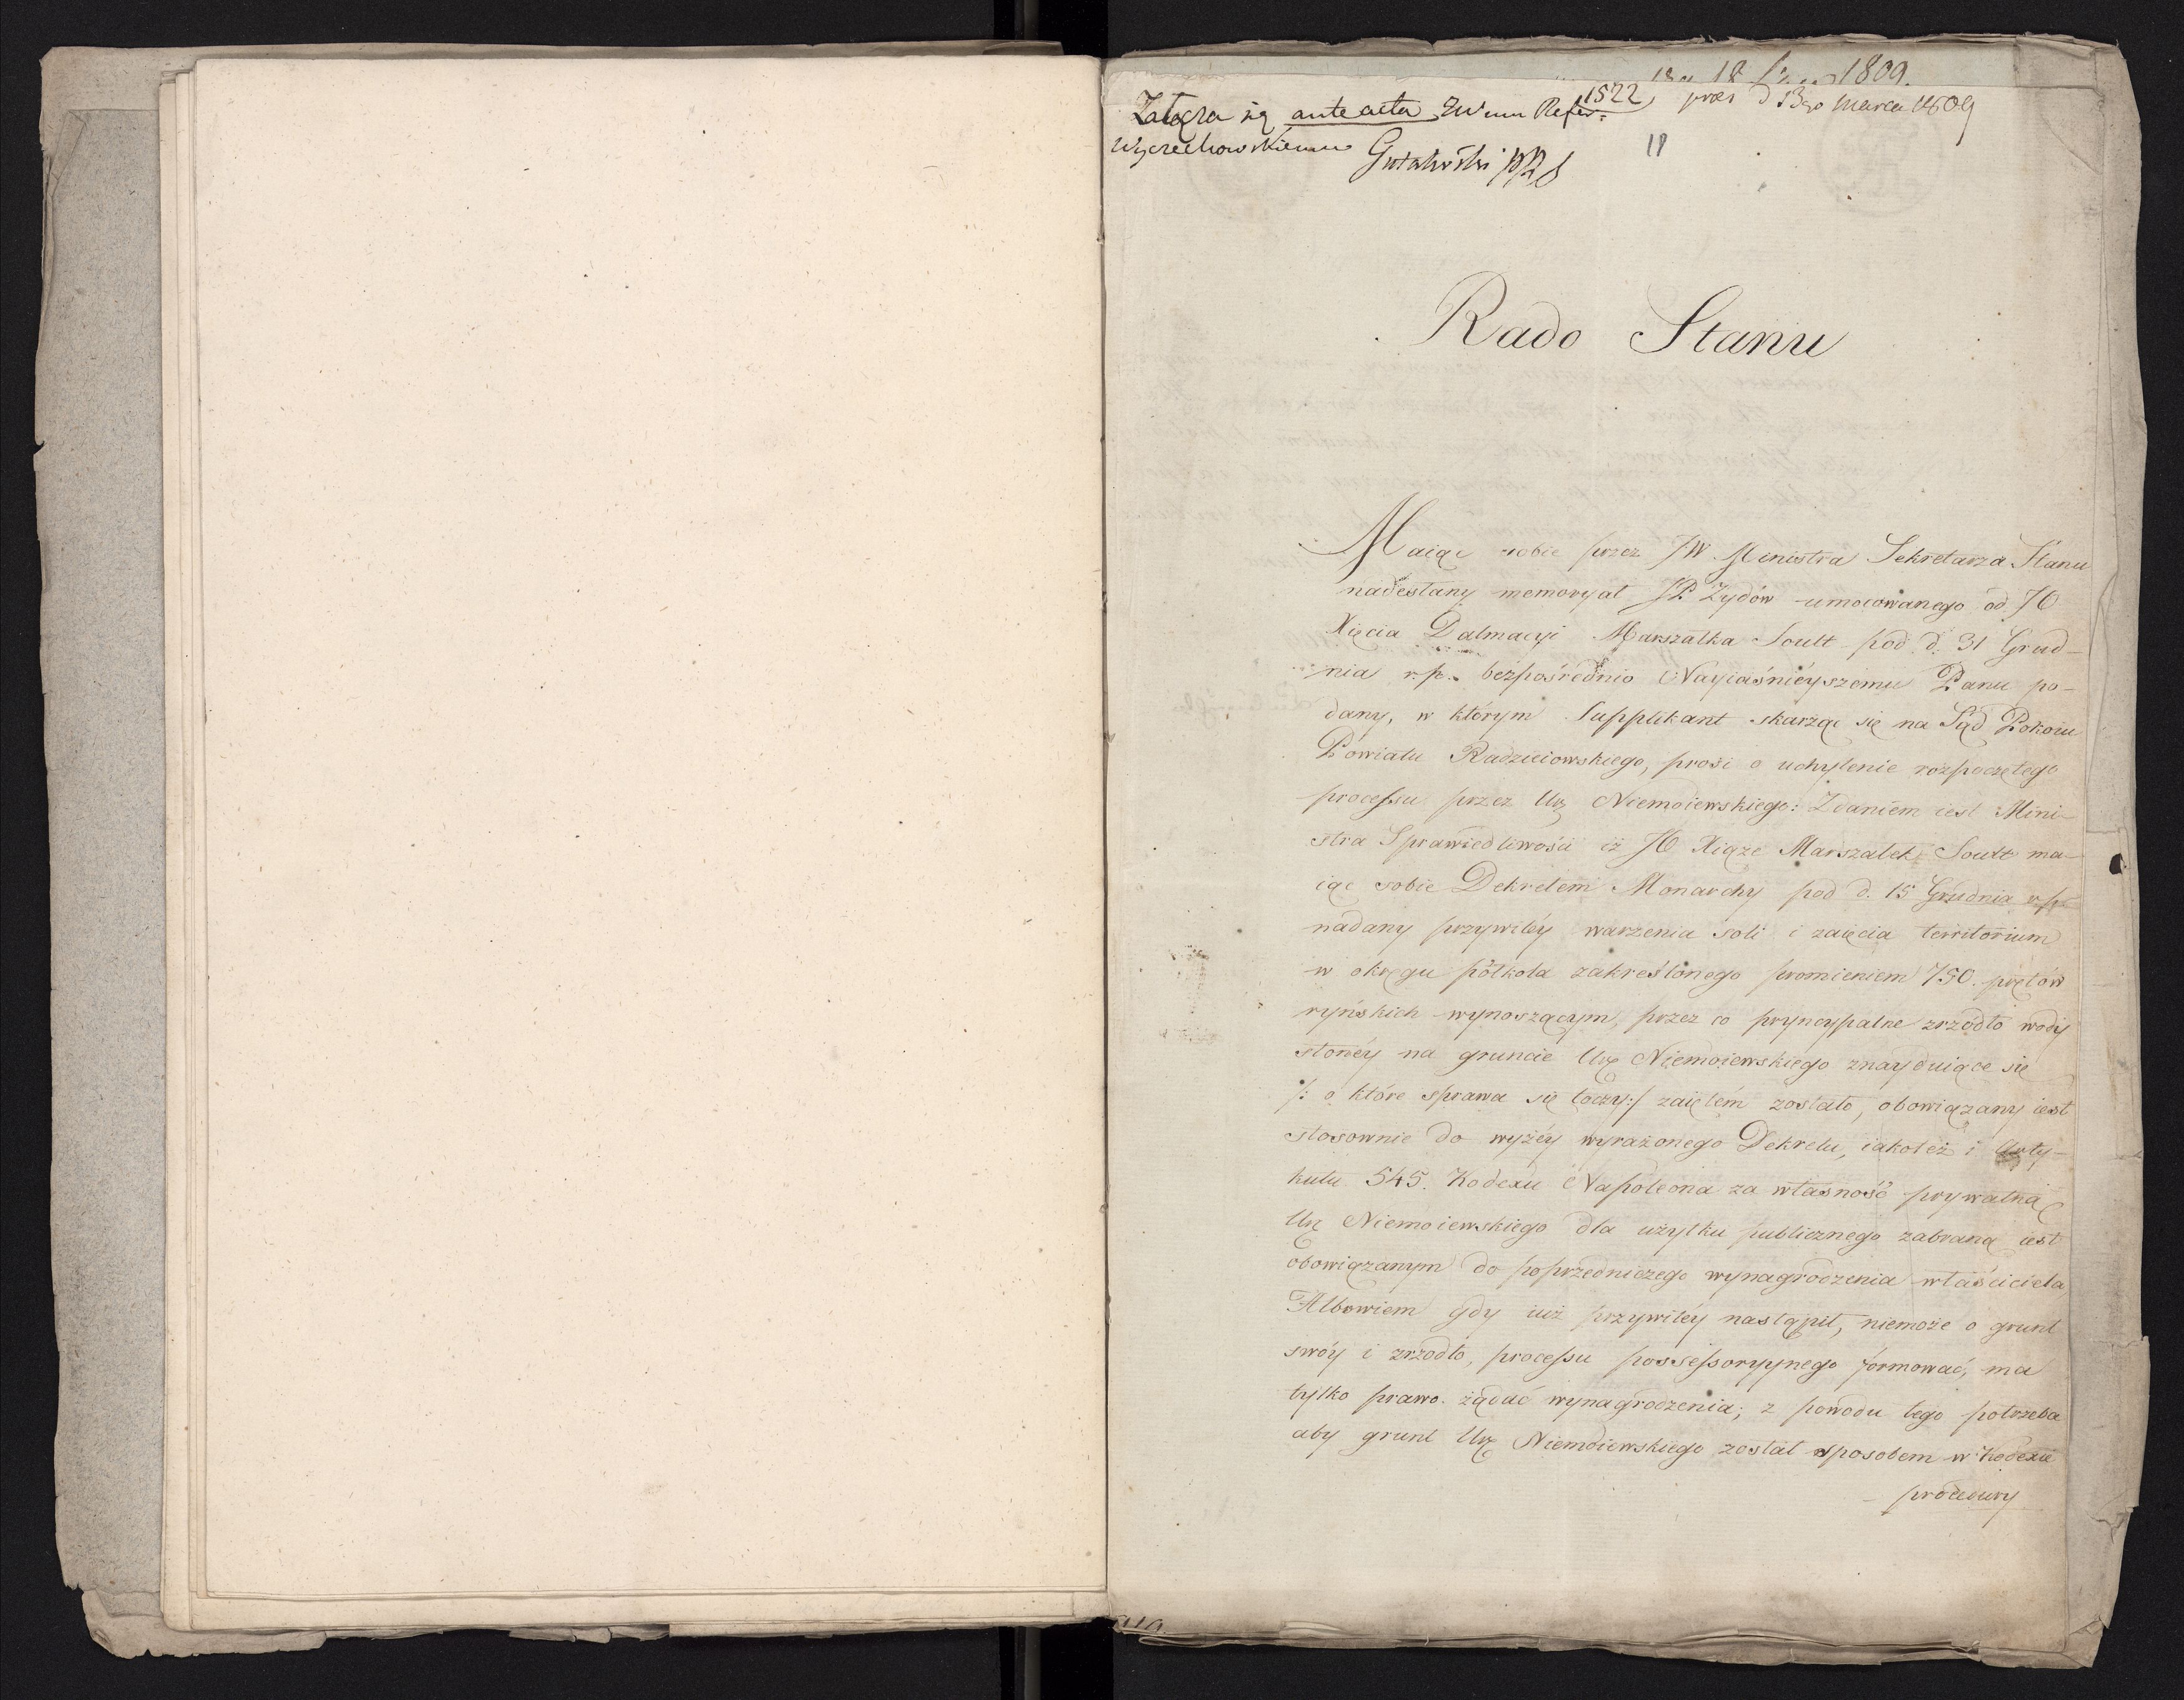 1809.
1522, præs d 13go Marca 1809
Załącza się ante acta Wmu Refer:
Wyczechowskiemu
18
Rado Stanu
Maiąc sobie przez JW. Ministra Sekretarza Stanu
nadesłany memoryał JP. Zydów umocowanego od JO
Xięcia Dalmacyi Marszałka Soult pod d. 31 Grud-
nia r.p. bezpośrednio Nayiaśnieyszemu Panu po-
dany, w którym Supplikant skarżąc się na Sąd Pokoiu
Powiatu Radzieiowskiego, prosi o uchylenie rozpoczętego
processu przez Ur. Niemoiewskiego: Zdaniem iest Mini-
stra Sprawiedliwości iż JO Xiąże Marszałek Soult ma-
iąc sobie Dekretem Monarchy pod d. 15 Grudnia r.p.
nadany przywiley warzenia soli i zaięcia territorium
w okręgu półkola zakreślonego promieniem 750. prętów
ryńskich wynoszącym, przez co pryncypalne zrzodło wody
słoney na gruncie Ur. Niemoiewskiego znayduiące się
/: o które sprawa się toczy:/ zaiętem zostało, obowiązany iest
stosownie do wyżey wyrażonego Dekretu, iakoteż i Arty-
kułu 545. Kodexu Napoleona za własność prywatną
Ur. Niemoiewskiego dla użytku publicznego zabraną iest
obowiązanym do poprzedniczego wynagrodzenia właściciela
Albowiem gdy iuż przywiley nastąpił, niemoże o grunt
swóy i zrzodło, processu possessoryynego formować, ma
tylko prawo żądać wynagrodzenia; z powodu tego potrzeba
aby grunt Ur. Niemoiewskiego został sposobem w Kodexie
procedury